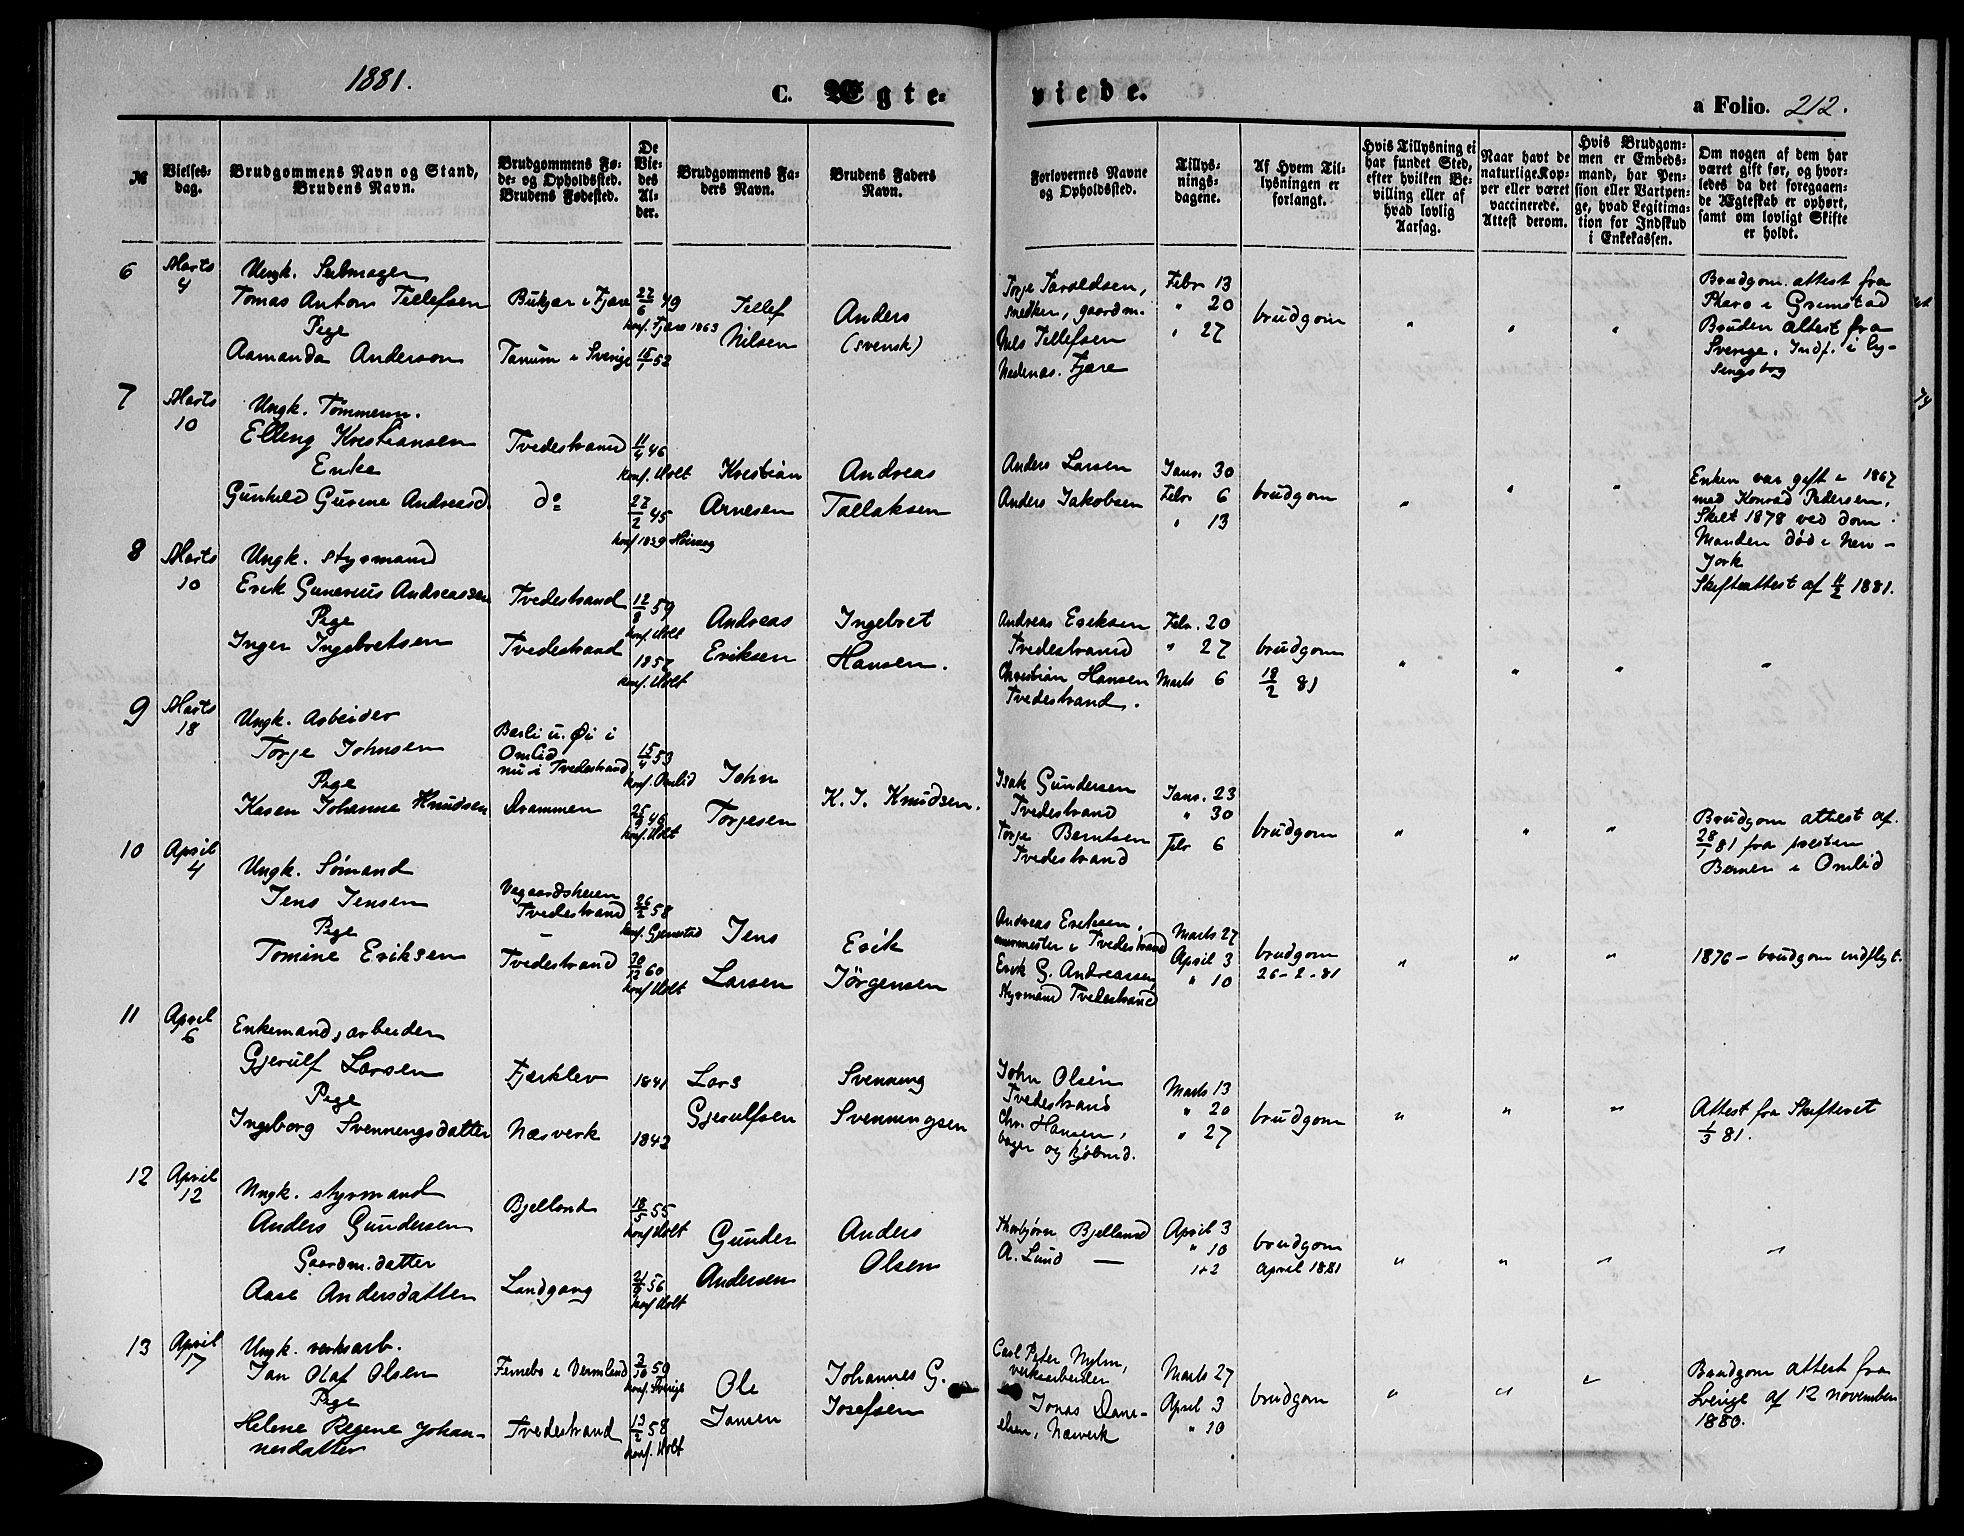 1881.
C. Ægte-
viede.
a Folio. 212.
№
Vielses-
dag.
Brudgommens Navn og Stand,
Brudens Navn.
Brudgommens Fø-
de- og Opholdssted.
Brudens Fødested.
De
Vie-
des
Al-
der.
Brudgommens Fa-
ders Navn.
Brudens Faders
Navn.
Forlovernes Navne
og Opholdssted.
Tillys-
nings-
dagene.
Af Hvem Til-
lysningen er
forlangt.
Hvis Tillysning ei
har fundet Sted,
efter hvilken Be-
villing eller af
hvad lovlig
Aarsag.
Naar havt de
naturlige Kop-
per eller været
vaccinerede.
Attest derom.
Hvis Brudgom-
men er Embeds-
mand, har Pen-
sion eller Vartpen-
ge, hvad Legitima-
tion for Indskud
i Enkekassen.
Om nogen af dem har
været gift før, og hvor-
ledes da det foregaaen-
de Ægteskab er ophørt,
samt om lovligt Skifte
er holdt.
6
Marts
4
Ungk. Seilmager
Tomas Anton Tellefsen
Pige
Aamanda Anderson
Bukjær i Fjære
Tanum i Sverige
27/6 49
konf. Fjære 1863
15/1 52
Tellef
Nilsen
Anders
(svensk)
Torje Taraldsen,
snedker, gaardm.
Nils Tellefsen
Nedenæs. Fjære
Febr 13
" 20
" 27
brudgom
" " "
Brudgom. attest fra
Pharo i Grimstad
Bruden attest fra
Sverige. Indf. i ly-
singsbog
7
Marts
10
Ungk. Tømmerm.
Elling Kristiansen
Enke
Gunhild Gurine Andreasd.
Tvedestrand
do
11/4 46
konf. Holt
27/2 45
Kristian
Arnesen
Andreas
Tallaksen
Anders Larsen
Anders Jakobsen
Janr. 30
Febr 6
" 13
brudgom
" " "
Enken var gift i 1867
med Konrad Pedersen,
Skilt 1878 ved dom.
Manden død i New-
York
Skifteattest af 11/2 1881.
8
Marts
10
Ungk. styrmand
Erik Gunerius Andreassen
Pige
Inger Ingebretsen
Tvedestrand
Tvedestrand
12/8 59
konf. Holt
1857
konf. Holt
Andreas
Eriksen
Ingebret
Hansen.
Andreas Eriksen
Tvedestrand
Christian Hansen
Tvedestrand.
Febr. 20
" 27
Marts 6
brudgom
18/2 81
" " " "
9
Marts
18
Ungk. Arbeider
Torje Johnsen
Pige
Karen Johanne Knudsen
Barli u. Øi i
Omlid
nu i Tvedestrand
Drammen
15/4 53
konf. Omlid
konf. Holt
John
Torjesen
K. J. Knudsen.
Isak Gundersen
Tvedestrand
Torje Berntsen
Tvedestrand
Janr. 23
" 30
Febr 6
brudgom
" " "
Brudgom attest af.
28/1 81 fra presten
Berner i Omlid
10
April
4
Ungk. Sømand
Jens Jensen
Pige
Tomine Eriksen
Vegaardsheien
Tvedestrand
Tvedestrand
26/2 58
konf. Gjerrestad
30/12 60
konf. Holt
Jens
Larsen
Erik
Jörgensen
Andreas Eriksen,
murmester i Tvedestrand
Erik G. Andreassen
Styrmand Tvedestrand
Marts 27
April 3
" 10
brudgom
26-2-81
" " "
1876 - brudgom indflyt.
11
April
6
Enkemand, arbeider
Gjerulf Larsen
Pige
Ingeborg Svenningsdatter
Fjærklev
Næsverk
1841
1842
Lars
Gjerulfsen
Svenning
Svenningsen
John Olsen
Tvedestrand
Chr. Hansen,
bager og kjøbmd.
Marts 13
" 20
" 27
brudgom
" " "
Attest fra Skifteret
1/3 81.
12
April
12
Ungk. styrmand
Anders Gundersen
Gaardm.datter
Aase Andersdatter
Bjelland
Landgang
18/5 55
konf Holt
21/9 56
konf Holt
Gunder
Andersen
Anders
Olsen
Thorbjørn Bjelland
A. Lund —
April 3
" 10
1+2
brudgom
april 1881
" " " "
13
April
17
Ungk. verksarb.
Jan Olaf Olsen
Pige
Helene Regine Johan-
nesdatter
Fernebo i Vermland
Tvedestrand
3/10 59
konf. Sverige
13/2 58
konf. Holt
Ole
Jansen
Johannes G.
Josefsen
Carl Peter Nylin,
verksarbeider
Jonas Dani-
elsen, Næsverk
Marts 27
April 3
" 10
brudgom
" " "
Brudgom attest fra
Sverige af 12 november
1880.